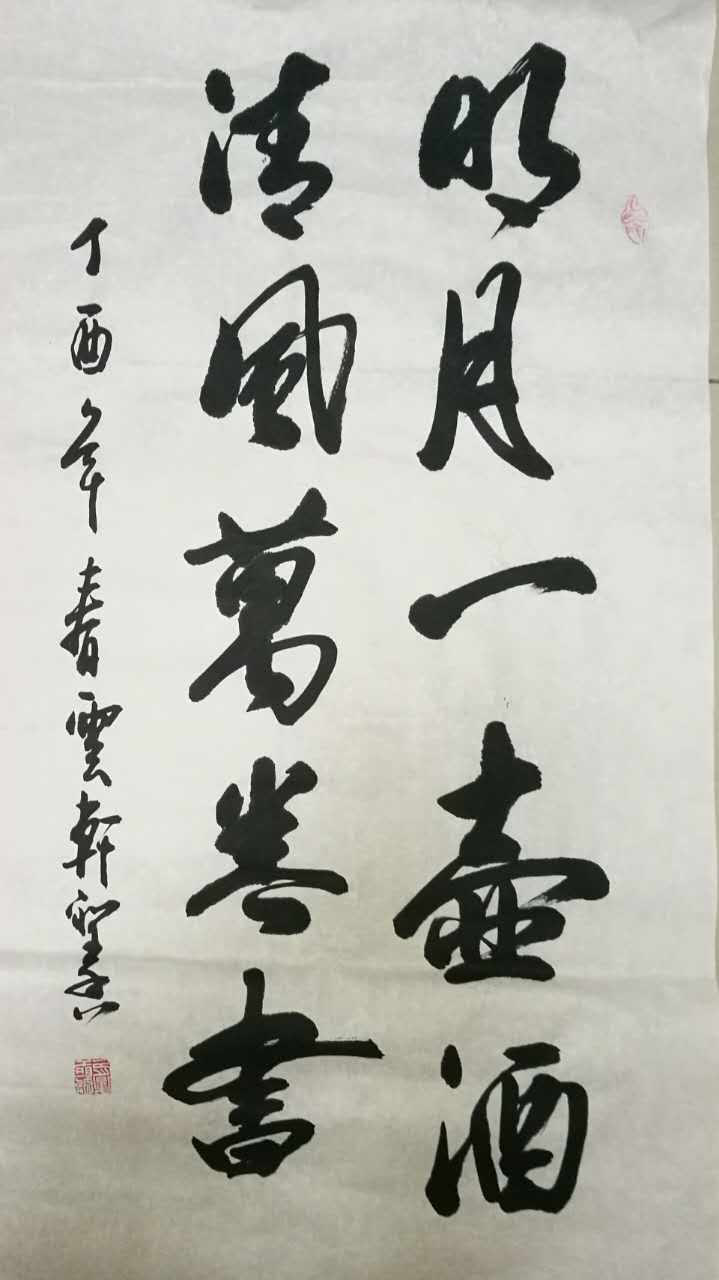 明月一壺酒
清風萬卷書
丁酉年春雲軒聖